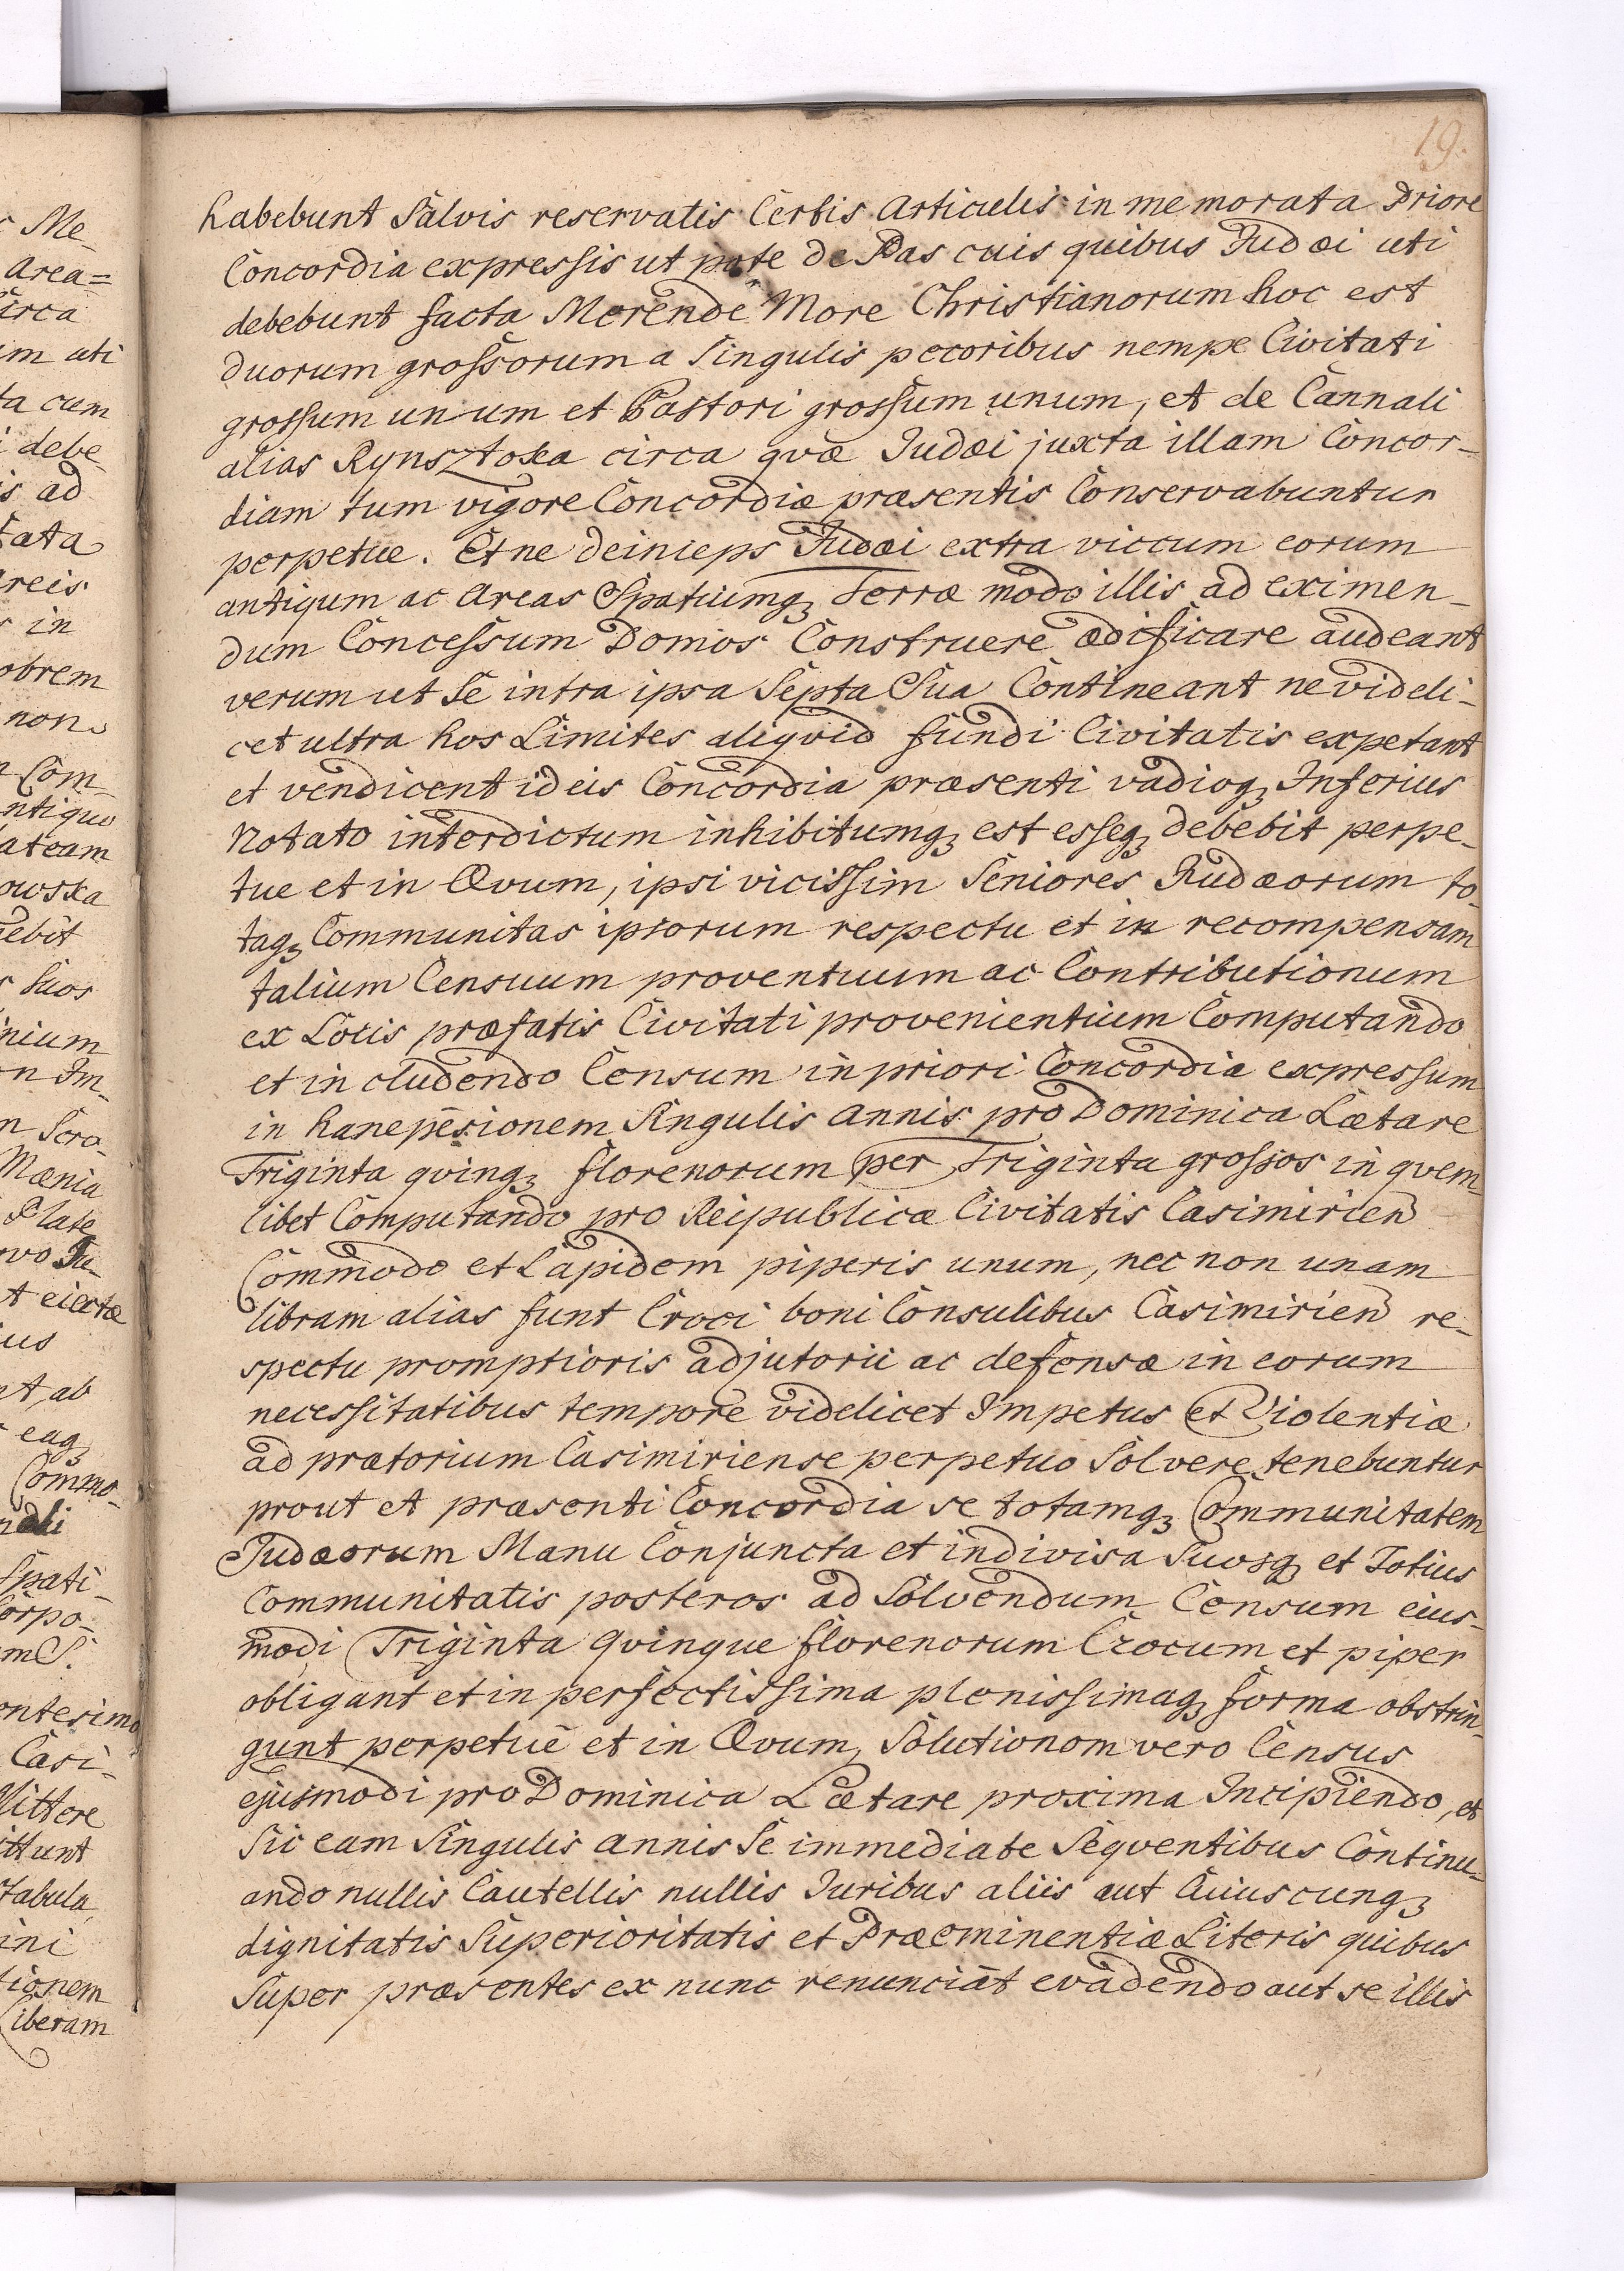 19.
habebunt Salvis reservatis Certis Articulis in me morata Priore
Concordia expressis ut pote de Pas cuis quibus Judæi uti
debebunt facta Merende More Christianorum hoc est
duorum grossorum a Singulis pecoribus nempe Civitati
grossum unum et Pastori grossum unum, et de Cannali
alias Rynsztoka circa qvæ Judæi juxta illam Concor-
diam tum vigore Concordiæ præsentis Conservabuntur
perpetue. Et ne deinceps Judæi extra viccum eorum
antiqum ac Areas Spatiumq3 Terræ modo illis ad eximen-
dum Concessum Domos Construere ædificare audeant
verum ut Se intra ipsa Septa Sua Contineant ne videli-
cet ultra hos Limites aliqvid fundi Civitatis expetant
et vendicent id eis Concordia præsenti vadioq3 Inferius
Notato interdictum inhibitumq3 est esseq3 debebit perpe-
tue et in Ævum, ipsi vicissim Seniores Judæorum to-
taq3 Communitas ipsorum respectu et in recompensam
talium Censuum proventuum ac Contributionum
ex Locis præfatis Civitati provenientium Computando
et in cludendo Censum in priori Concordia expressum
in hanc pēsionem Singulis Annis pro Dominica Lætare
Triginta qvinq3 florenorum per Triginta grossos in qvem-
libet Computando pro Reipublicæ Civitatis Casimirien
Commodo et Lapidem piperis unum, nec non unam
libram alias funt Croci boni Consulibus Casimirien re-
spectu promptioris adjutorii ac defensæ in eorum
necessitatibus tempore videlicet Impetus et Violentiæ
ad prætorium Casimiriense perpetuo Solvere tenebuntur
prout et præsenti Concordia se totamq3 Communitatem
Judæorum Manu Conjuncta et indivisa Suosq3 et Totius
Communitatis posteros ad Solvendum Censum eius-
modi Triginta Qvinque florenorum Crocum et piper
obligant et in perfectissima plenissimaq3 forma obstrin-
gunt perpetue et in Ævum, Solutionem vero Census
ejusmodi pro Dominica Lætare proxima Incipiendo, et
Sic eam Singulis annis Se immediate Seqventibus Continu-
ando nullis Cautellis nullis Juribus aliis aut Cuiuscunq3
dignitatis Superioritatis et Præeminentiæ Literis quibus
Super præsentes ex nunc renunciāt evadendo aut se illis